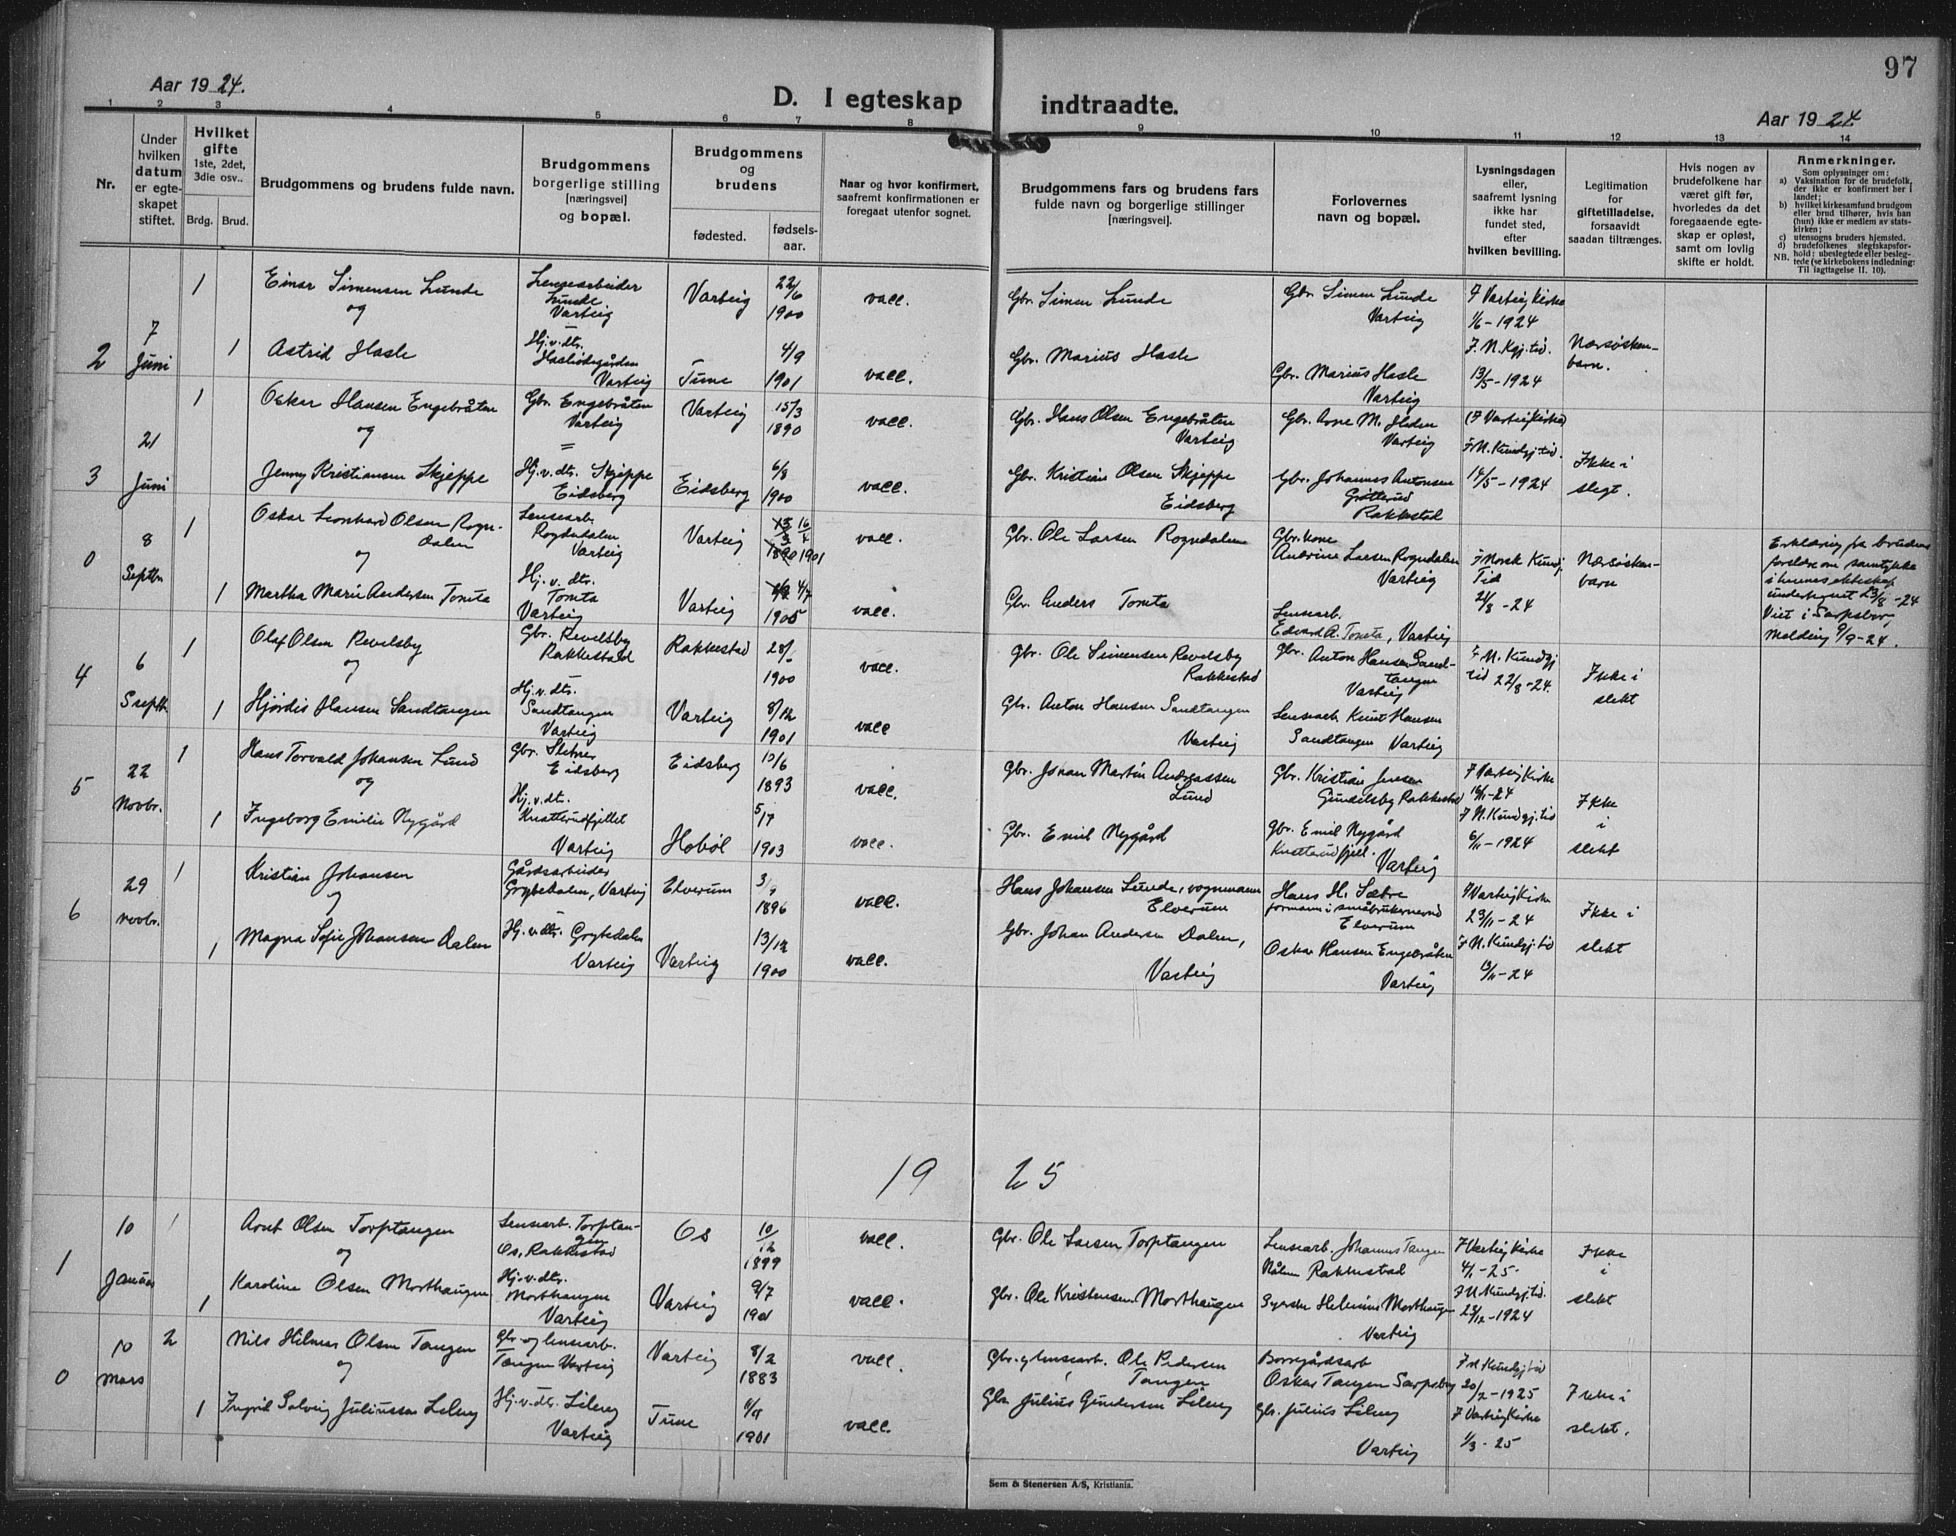 97
Aar 1924.
D. I egteskap indtraadte.
Aar 1924.
1 2 3 4 5 6 7 8 9 10 11 12 13 14
Nr.
Under hvilken datum er egteskapet stiftet.
Hvilket gifte
1ste, 2det, 3die osv..
Brdg. Brud.
Brudgommens og brudens fulde navn.
Brudgommens borgerlige stilling [næringsvei] og bopæl.
Brudgommens og brudens
fødested.
fødselsaar.
Naar og hvor konfirmert, saafremt konfirmationen er foregaat utenfor sognet.
Brudgommens fars og brudens fars fulde navn og borgerlige stillinger [næringsvei].
Forlovernes navn og bopæl.
Lysningsdagen eller, saafremt lysning ikke har fundet sted, efter hvilken bevilling.
Legitimation for giftetilladelse, forsaavidt saadan tiltrænges.
Hvis nogen av brudefolkene har været gift før, hvorledes da det foregaaende egteskap er opløst, samt om lovlig skifte er holdt.
Anmerkninger.
Som oplysning om:
a) Vaksination for de brudefolk, der ikke er konfirmert her i landet;
b) hvilket kirkesamfund brudgom eller brud tilhører, hvis han (hun) ikke er medlem av statskirken;
c) utensogns bruders hjemsted.
d) brudefolkenes slegtskapsforhold: ubeslegtede eller beslegtede (se kirkebokens indledning:
NB. Til iagttagelse II. 10).
2
7 Juni
1
Einar Simensen Lunde
og
Lensearbeider
Lunde
Varteig
Varteig
22/6
1900
vacc.
Gbr. Simen Lunde
Gbr. Simen Lunde
Varteig
I Varteig Kirke
1/6-1924
1
Astrid Hasle
Hj.v.dtr.
Varteig
Tune
4/9
1901
vacc.
Gbr. Marius Hasle
Gbr. Marius Hasle
Varteig
I. N. Kgj. tid.
13/5-1924
Nærsøskenbarn.
3
21 Juni
1
Oskar Hansen Engebråten
og
Gbr. Engebråten
Varteig
Varteig
15/3
1890
vacc.
Gbr. Hans Olsen Engebråten
Varteig
Gbr. Arne M.
Varteig
(I Varteig Kirke)
Jenny Kristiansen Skjeppe
Hj.v.dtr. Skjeppe
Eidsberg
Eidsberg
6/8
1900
vacc.
Gbr. Kristian Olsen Skjeppe
Eidsberg
Gbr. Johannes Antonsen
Grøtterud
Rakkestad
I N. Kundgj. tid.
14/5-1924
Ikke i
slegt.
0
8 Septbr
1
Oskar Leonhard Olsen Rogndalen
og
Lensearb.
Rogndalen
Varteig
Varteig
16/4
1890 1901
vacc.
Gbr. Ole Larsen Rogndalen
Gbr. kone
Andrine Larsen Rogndalen
Varteig
I Norsk Kundgj.
Tid
21/8-24
Nærsøskenbarn
Erklæring fra brudens
forældre om samtykke
i hennes ekteskap
undertegnet 23/8-24
Viet i Sarpsborg
Melding 9/9-24.
1
Martha Marie Andersen Tomta
Hj.v.dtr.
Tomta
Varteig
Varteig
4/7
1905
vacc.
Gbr. Anders Tomta
Lensearb.
Edvard A. Tomta, Varteig
4
6 Septbr.
1
Olaf Olsen Revelsby
og
Gbr. Revelsby
Rakkestad
Rakkestad
1900
vacc.
Gbr. Ole Simensen Revelsby
Rakkestad
Gbr. Anton Hansen Sandtangen
Varteig
I N. Kundgj
tid 22/8-24.
Ikke i
slekt
1
Hjørdis Hansen Sandtangen
Hj.v.dtr.
Sandtangen
Varteig
Varteig
8/12
1901
vacc
Gbr. Anton Hansen Sandtangen
Varteig
Lensearb. Knut Hansen
Sandtangen Varteig
5
22 Novbr.
1
Hans Torvald Johansen Lund
og
Gbr.
Eidsberg
Eidsberg
10/6
1893
vacc.
Gbr. Johan Martin Andreassen
Lund
Gbr. Kristian Jensen
Gundelsby Rakkestad
I Varteig Kirke
16/11-24
Ikke
i
slekt
1
Ingeborg Emilie Nygård
Hj.v.dtr.
Knatterudfjellet
Varteig
Hobøl
5/17
1903
vacc.
Gbr. Emil Nygård
Gbr. Emil Nygård
Knatterudfjell.
Varteig
I N. Kundgj. tid
6/11-1924
6
29 Novbr.
1
Kristian Johansen
og
Gårdsarbeider
Grytedalen, Varteig
Elverum
1896
vacc.
Hans Johansen Lunde, vognmann
Elverum
Hans H. Sætre
formann i småbrukernævnd
Elverum
I Varteig Kirke
23/11-24
Ikke i
slekt
1
Magna Sofie Johansen Dalen
Hj.v.dtr. Grytedalen
Varteig
Varteig
13/12
1900
vacc.
Gbr. Johan Andersen Dalen,
Varteig
Oskar Hansen Engebråten
Varteig
I N. Kundgj. tid
13/11-24
1925
1
10 Januar
1
Arnt Olsen Torptangen
og
Lensearb. Torptangen
Os, Rakkestad
Os
10/12
1899
vacc.
Gbr. Ole Larsen Torptangen
Lensearb. Johannes Tangen
Rakkestad
I Varteig Kirke
4/1-25.
Ikke
i
slekt
1
Karoline Olsen Morthaugen
Hj.v.dtr.
Morthaugen
Varteig
Varteig
9/7
1901
vacc.
Gbr. Ole Kristensen Morthaugen
Helmine Morthaugen
Varteig
I N. Kundgj. tid.
23/12-1924
0
10 Mars
2
Nils Hilmar Olsen Tangen
og
Gbr og lensearb.
Tangen Varteig
Varteig
8/2
1883
vacc.
Gbr. og lensearb. Ole Pedersen
Tangen
Borregårdsarb
Oskar Tangen Sarpsborg
I N Kundgj. tid
20/2-1925
Ikke i
slekt.
1
Ingrid Solveig Juliussen Lileng
Hj.v.dtr. Lileng
Varteig
Tune
1901
vacc.
Gbr Julius Gundersen Lileng
Gbr. Julius Lileng
Varteig
I Varteig Kirke
1/3-25
Sem & Stenersen A/S, Kristiania.